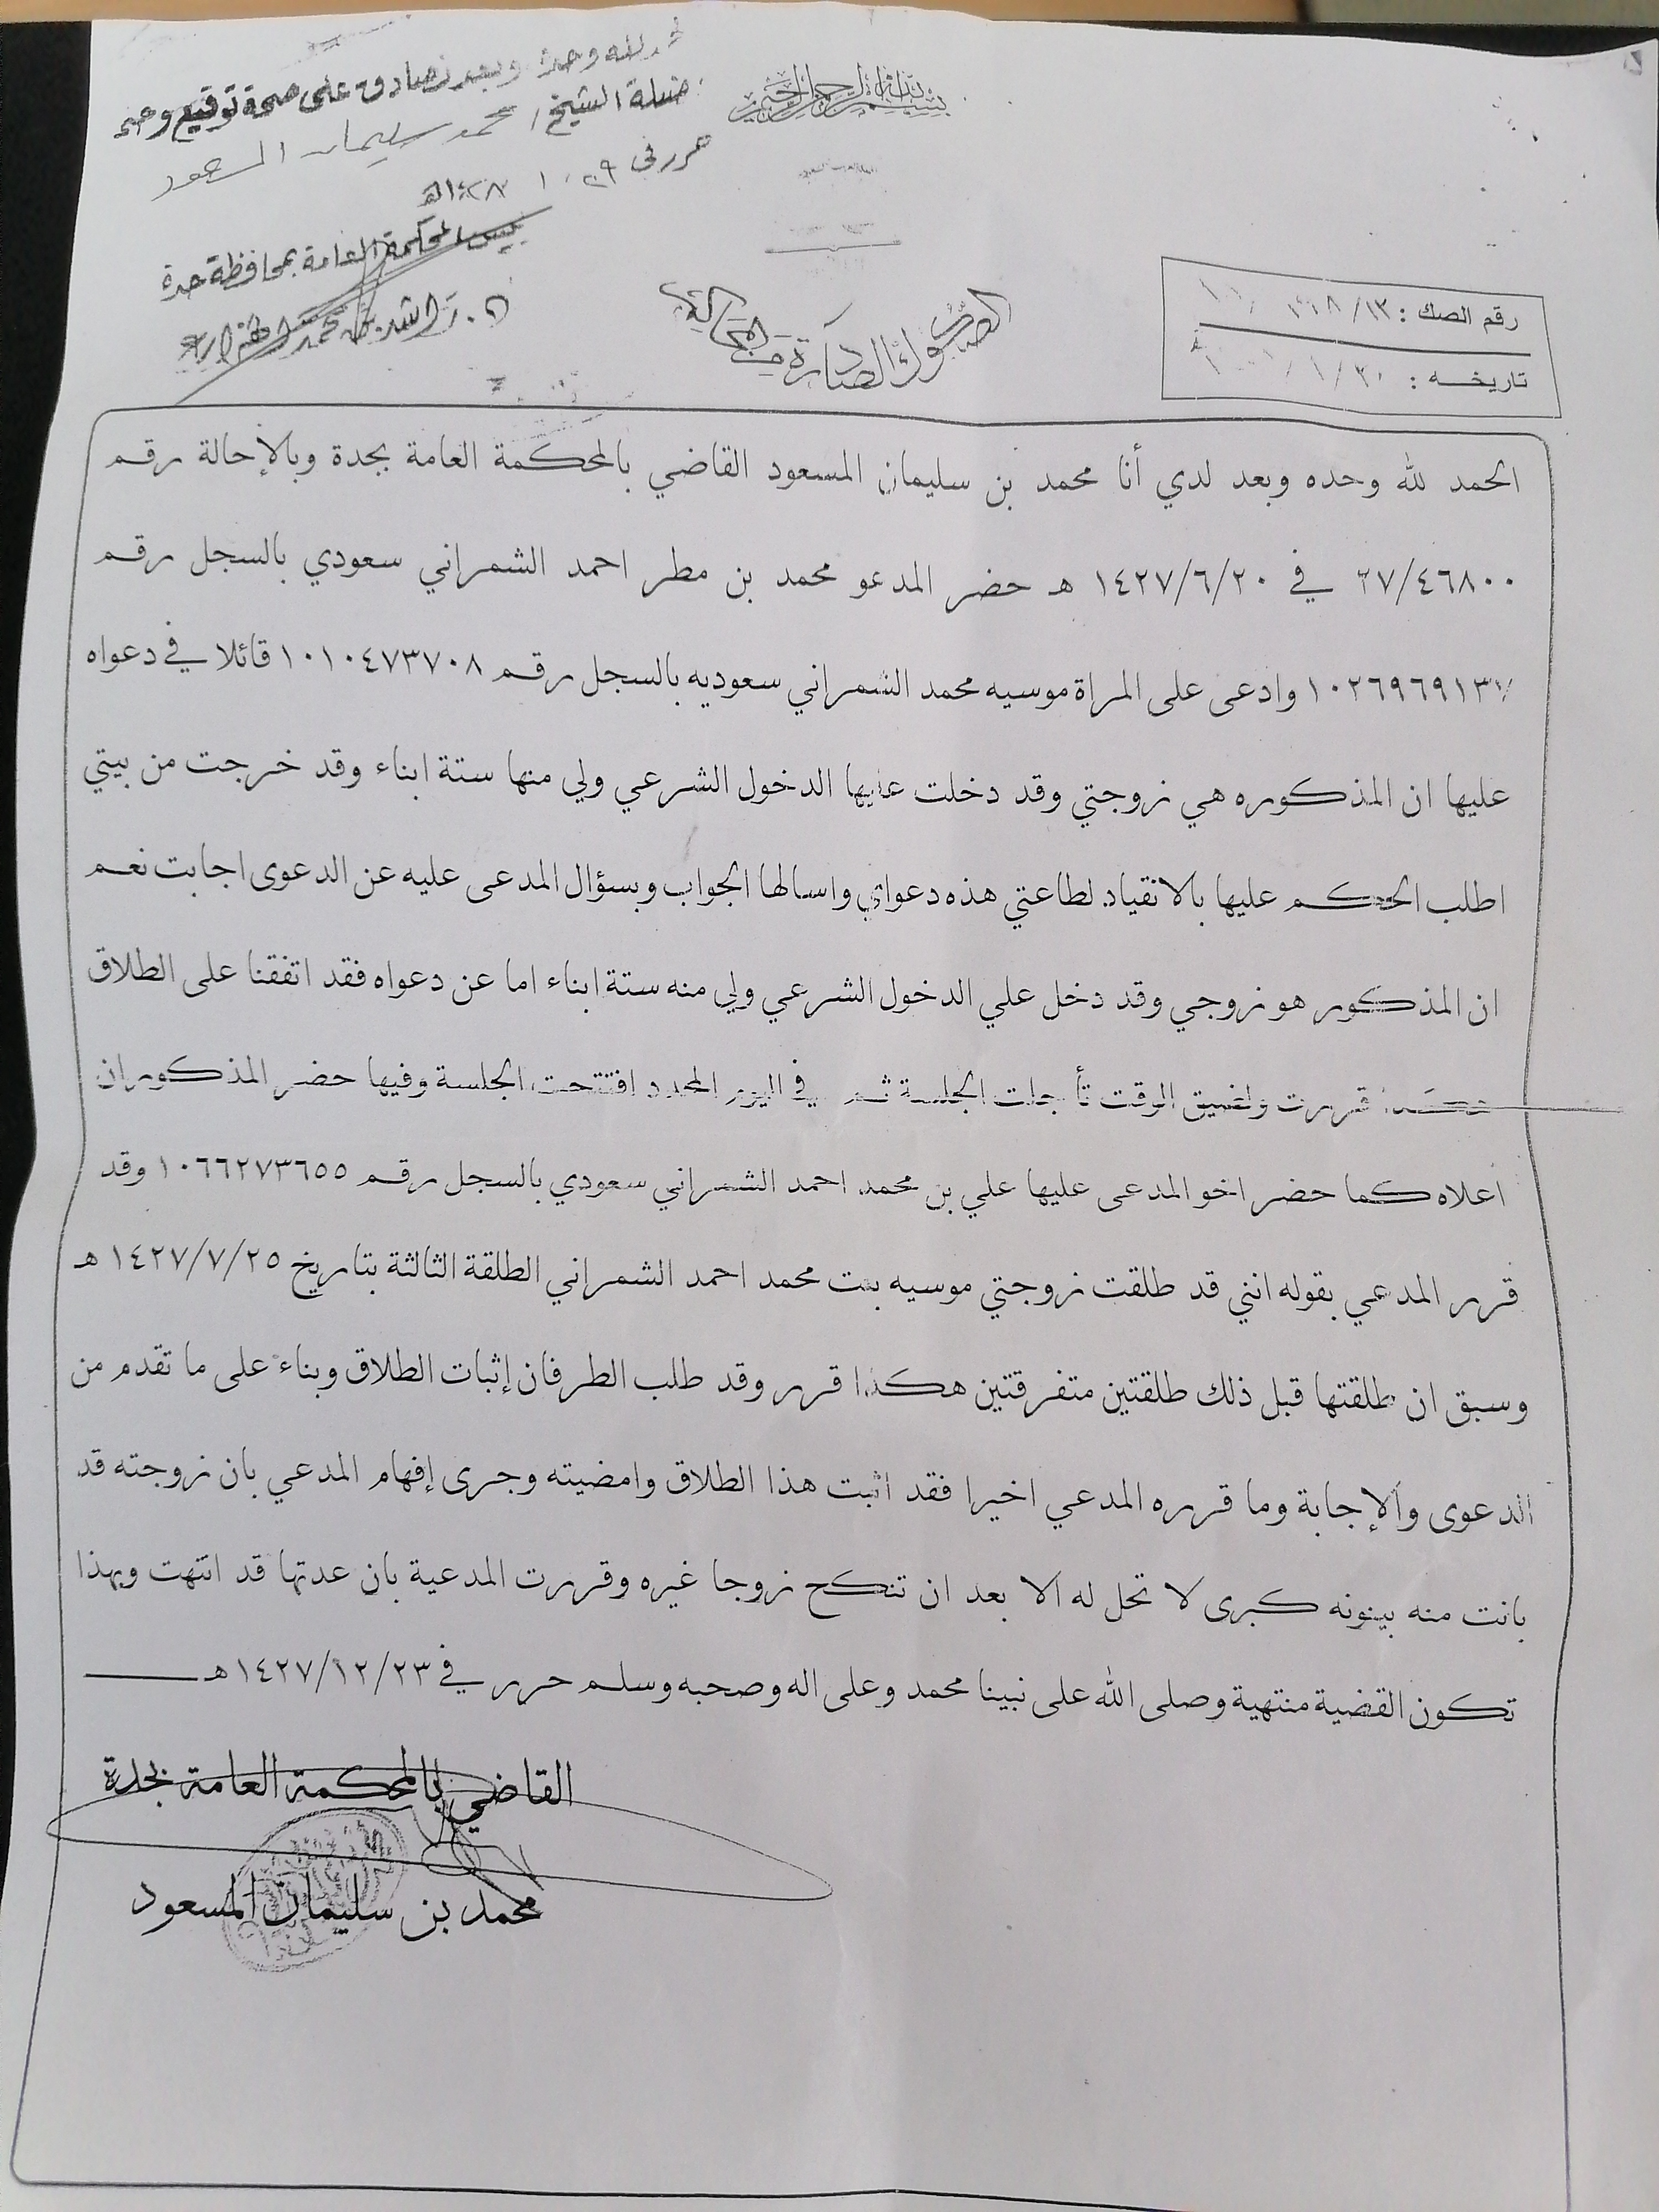 بسم الله الرحمن الرحيم
لله وحده وبعد نصادق على صحة توقيع وختم
فضيلة الشيخ / محمد سليمان المسعود
حرر في ٢٩ / ١٠ / ١٤٢٨هـ
رئيس المحكمة العامة بمحافظة جدة
راشد بن محمد
الصكوك الصادرة من
رقم الصك : ١٣/
تاريخه : ٣٠/١/
الحمد لله وحده وبعد لدي أنا محمد بن سليمان المسعود القاضي بالمحكمة العامة بجدة وبالإحالة رقم
٢٧/٤٦٨٠٠ في ١٤٢٧/٦/٢٠ هـ حضر المدعو محمد بن مطر احمد الشمراني سعودي بالسجل رقم
وادعى على المراة موسيه محمد الشمراني سعوديه بالسجل رقم ١٠١٠٤٧٣٧٠٨ قائلا في دعواه
عليها ان المذكوره هي زوجتي وقد دخلت عليها الدخول الشرعي ولي منها ستة ابناء وقد خرجت من بيتي
اطلب الحكم عليها بالانقياد لطاعتي هذه دعواي واسالها الجواب وبسؤال المدعى عليه عن الدعوى اجابت نعم
ان المذكور هو زوجي وقد دخل علي الدخول الشرعي ولي منه ستة ابناء اما عن دعواه فقد اتفقنا على الطلاق
هكذا قررت ولضيق الوقت تأجلت الجلسة ثم في اليوم المحدد افتتحت الجلسة وفيها حضر المذكوران
اعلاه كما حضر اخو المدعى عليها علي بن محمد احمد الشمراني سعودي بالسجل رقم ١٠٦٦٢٧٣٦٥٥ وقد
قرر المدعي بقوله انني قد طلقت زوجتي موسيه بنت محمد احمد الشمراني الطلقة الثالثة بتاريخ ١٤٢٧/٧/٢٥ هـ
وسبق ان طلقتها قبل ذلك طلقتين متفرقتين هكذا قرر وقد طلب الطرفان إثبات الطلاق وبناء على ما تقدم من
الدعوى والإجابة وما قرره المدعي اخيرا فقد اثبت هذا الطلاق وامضيته وجرى إفهام المدعي بان زوجته قد
بانت منه بينونه كبرى لا تحل له الا بعد ان تنكح زوجا غيره وقررت المدعية بان عدتها قد انتهت وبهذا
تكون القضية منتهية وصلى الله على نبينا محمد وعلى اله وصحبه وسلم حرر في ١٤٢٧/١٢/٢٣هـ
القاضي بالمحكمة العامة بجدة
محمد بن سليمان المسعود